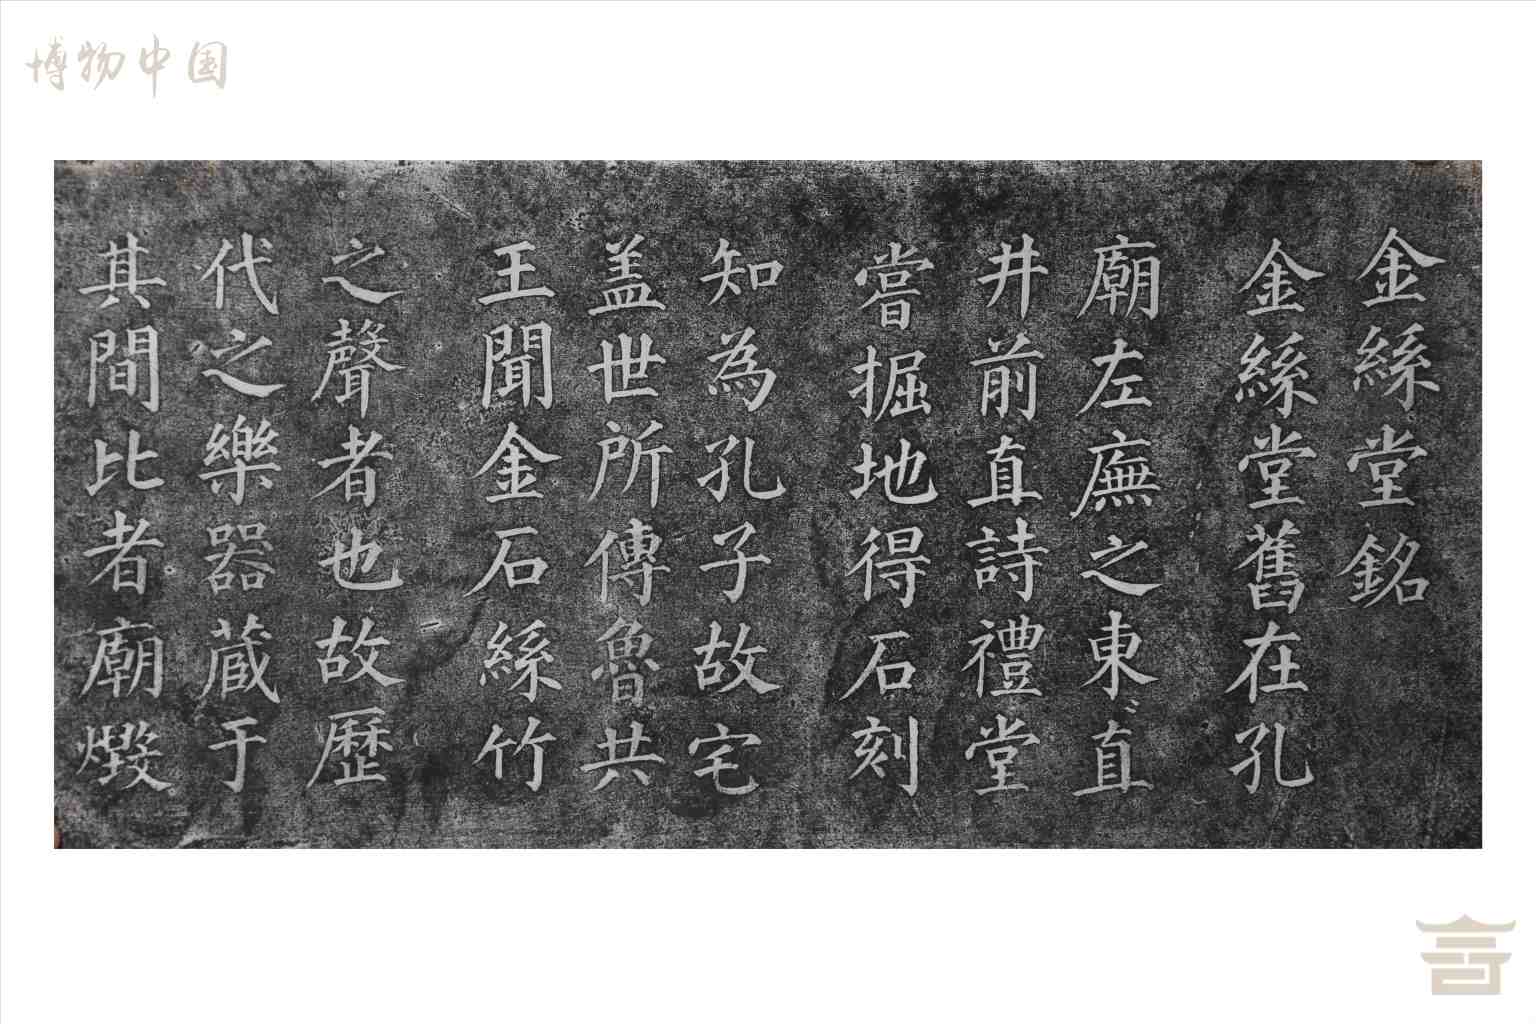 博物中国
金絲堂銘
金絲堂舊在孔
廟左廡之東直
井前直詩禮堂
嘗掘地得石刻
知為孔子故宅
盖世所傳魯共
王聞金石絲竹
之聲者也故歷
代之樂器蔵于
其間比者廟燬